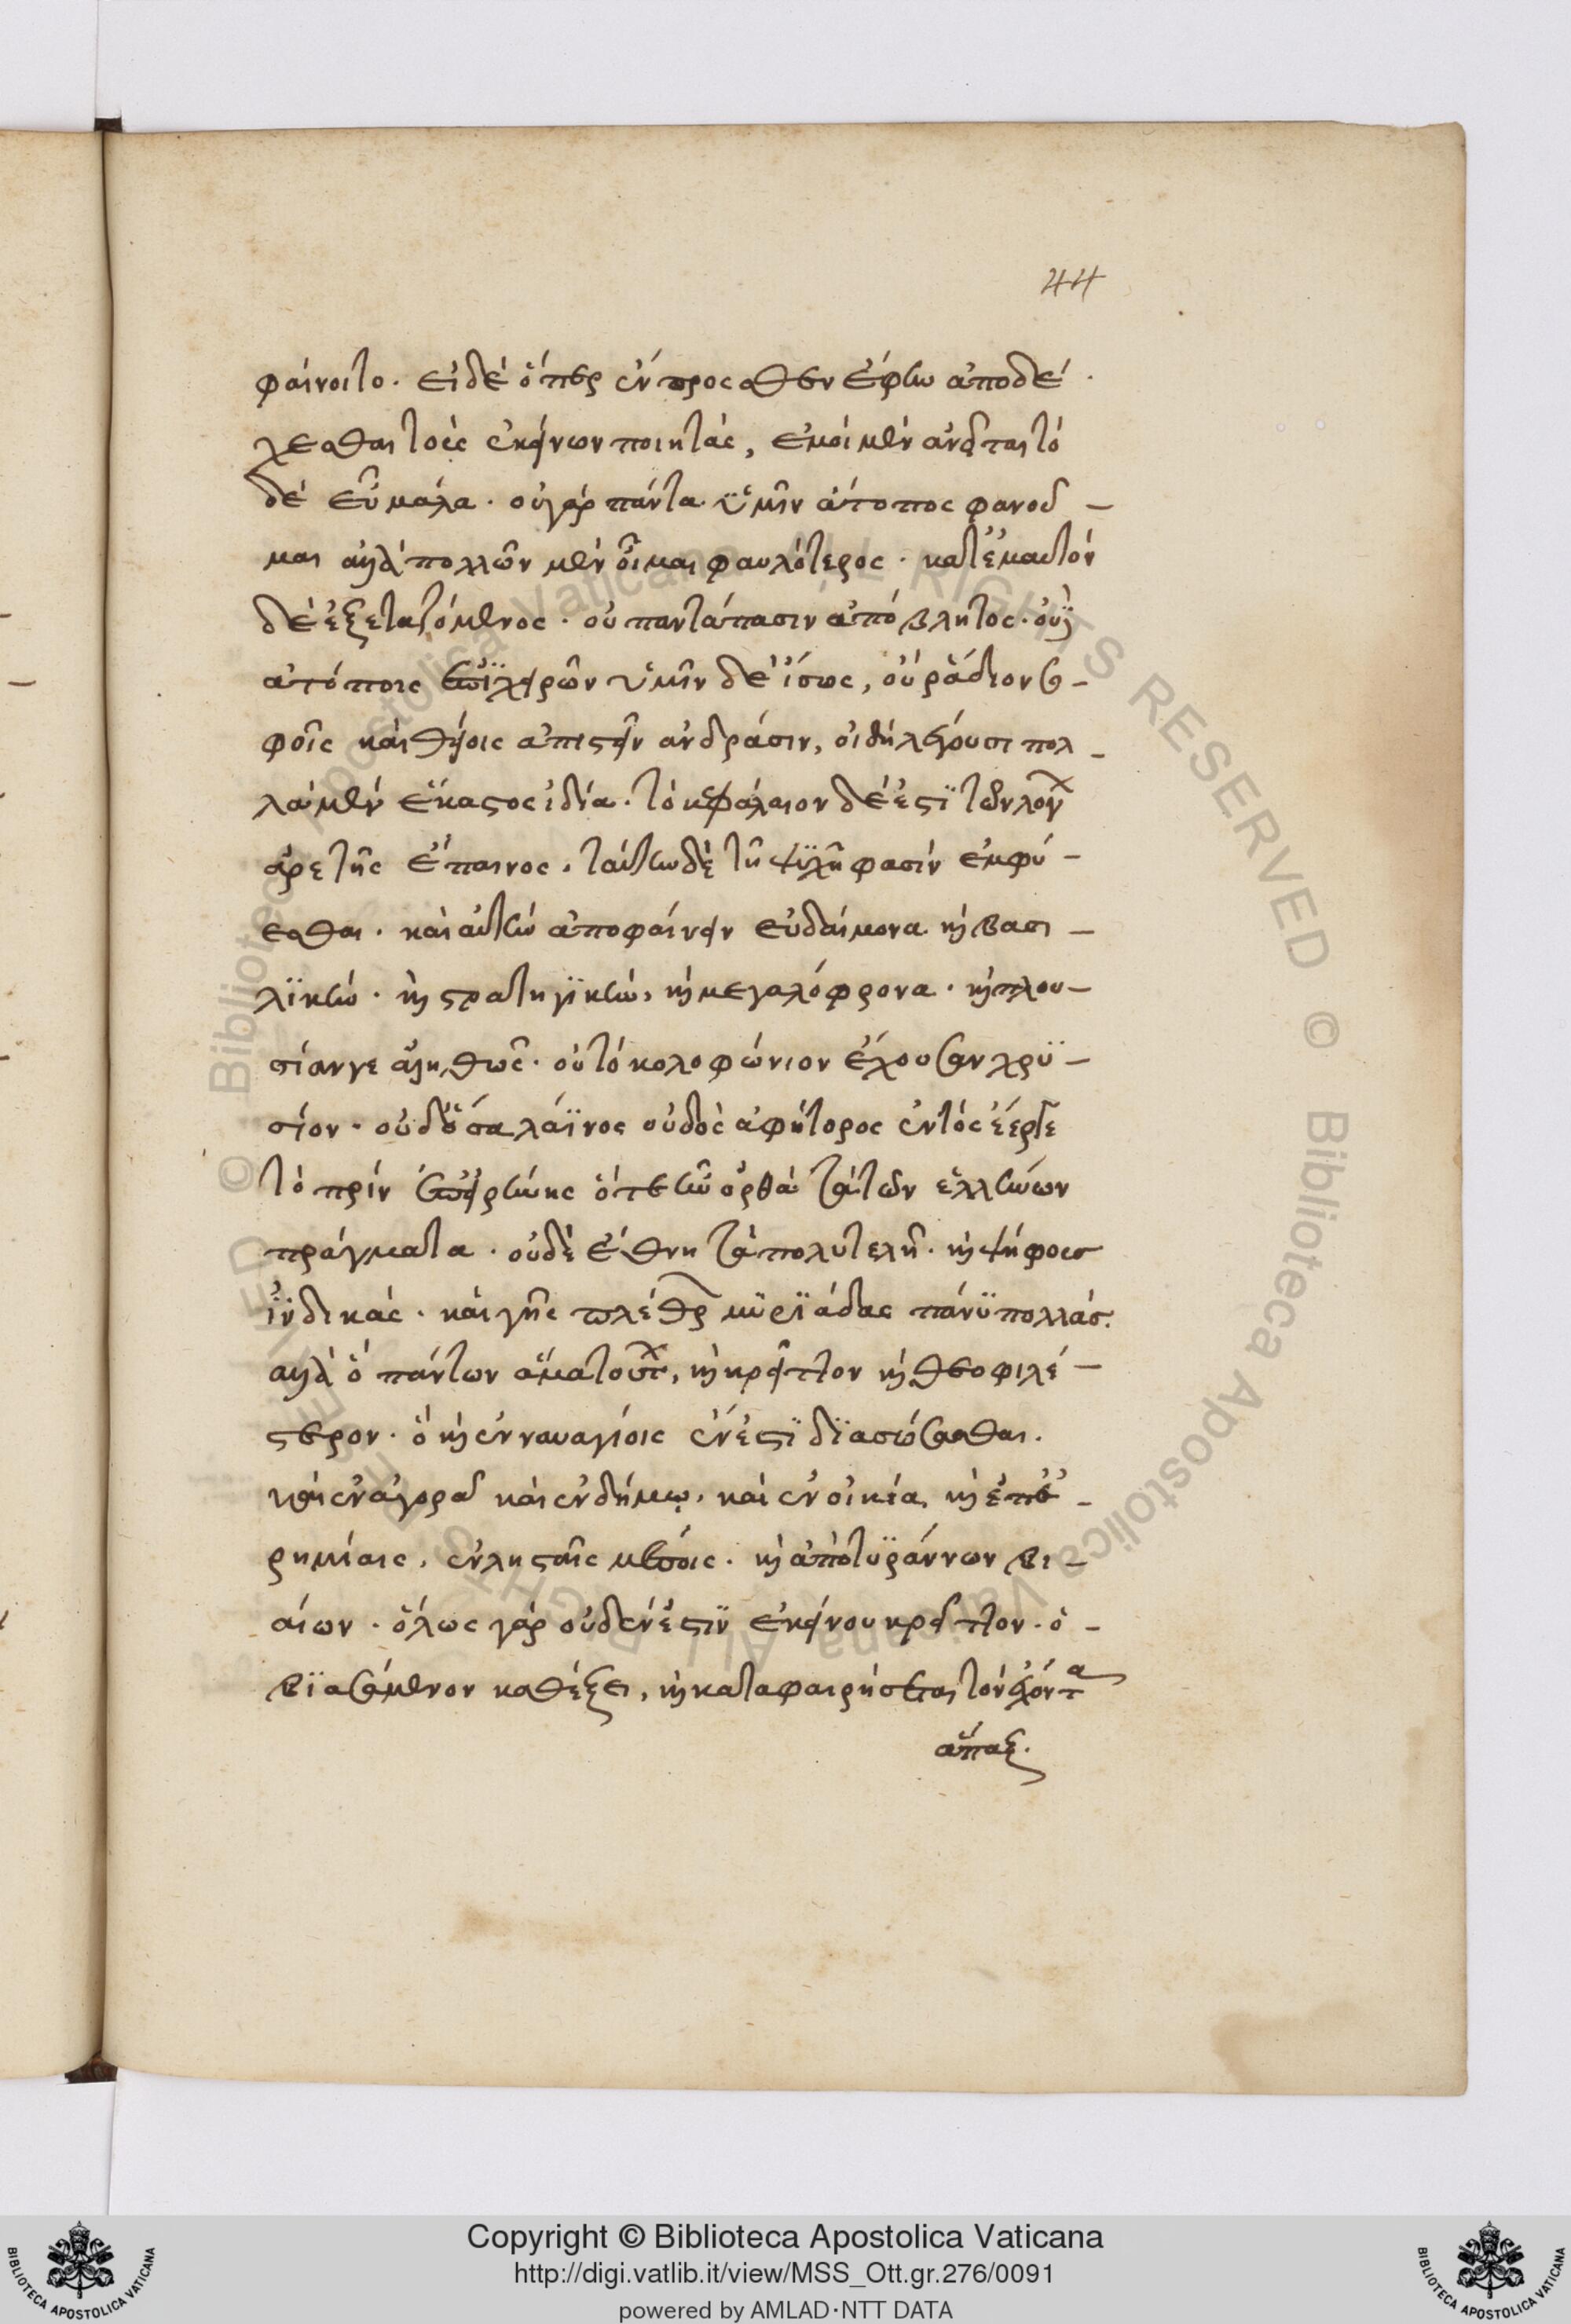 44
φαίνοιτο. εἰ δὲ ὅπερ ἔμπροσθεν ἔφην ἀποδέ
χεσθαι τοὺς ἐκείνων ποιητάς, ἐμοὶ μὲν ἄν ται τὸ
δὲ εὖ μάλα. οὐ γὰρ πάντα ὑμῖν ἄτοπος φανοῦ –
μαι ἀλλὰ πολλῶν μὲν οἶμαι φαυλότερος. κατ' ἐμαυτὸν
δὲ ἐξεταζόμενος. οὐ παντάπασιν ἀπόβλητος. οὐδ'
ἀτόποις ἐπιχειρῶν ὑμῖν δὲ ἴσως, οὐ ῥᾴδιον σο –
φοῖς καὶ θείοις ἀπιστεῖν ἀνδράσιν, οἳ δὴ λέγουσι πολ –
λὰ μὲν ἕκαστος ἰδίᾳ. τὸ κεφάλαιον δέ ἐστι τῶν λόγων
ἀρετῆς ἔπαινος. ταύτην δὲ τῇ ψυχῇ φασὶν ἐμφύ –
εσθαι. καὶ αὐτὴν ἀποφαίνειν εὐδαίμονα καὶ βασι –
λικήν. καὶ στρατηγικήν, καὶ μεγαλόφρονα. καὶ πλου –
σίαν γε ἀληθῶς. οὐ τὸ κολοφώνιον ἔχουσαν χρυ –
σίον. οὐδ' ὅσα λάϊνος οὐδὸς ἀφήτορος ἐντὸς ἔεργε
τὸ πρὶν ἐπ' εἰρήνης ὅτε ἦν ὀρθὰ τὰ τῶν ἑλλήνων
πράγματα. οὐδὲ ἔθνη τὰ πολυτελῆ. καὶ ψήφους
ἰνδικάς. καὶ γῆς πλέθρων μυριάδας πάνυ πολλάς.
ἀλλ' ὃ πάντων ἅμα τούτων, καὶ κρεῖττον καὶ θεοφιλέ –
στερον. ὃ καὶ ἐν ναυαγίοις ἔνεστι διασώσασθαι.
καὶ ἐν ἀγορᾷ καὶ ἐν δήμῳ, καὶ ἐν οἰκίᾳ, καὶ ἐπ' ἐ –
ρημίαις, ἐν λῃσταῖς μέσοις. καὶ ἀπὸ τυράννων βι –
αίων. ὅλως γὰρ οὐδέν ἐστιν ἐκείνου κρεῖττον. ὃ –
βιασάμενον καθέξει, καὶ καταφαιρήσεται τὸν ἔχοντα
ἅπαξ.
Copyright © Biblioteca Apostolica Vaticana
http://digi.vatlib.it/view/MSS_Ott.gr.276/0091
powered by AMLAD·NTT DATA
BIBLIOTECA APOSTOLICA VATICANA
BIBLIOTECA APOSTOLICA VATICANA
© Biblioteca Apostolica Vaticana ALL RIGHTS RESERVED
© Biblioteca Apostolica Vaticana ALL RIGHTS RESERVED